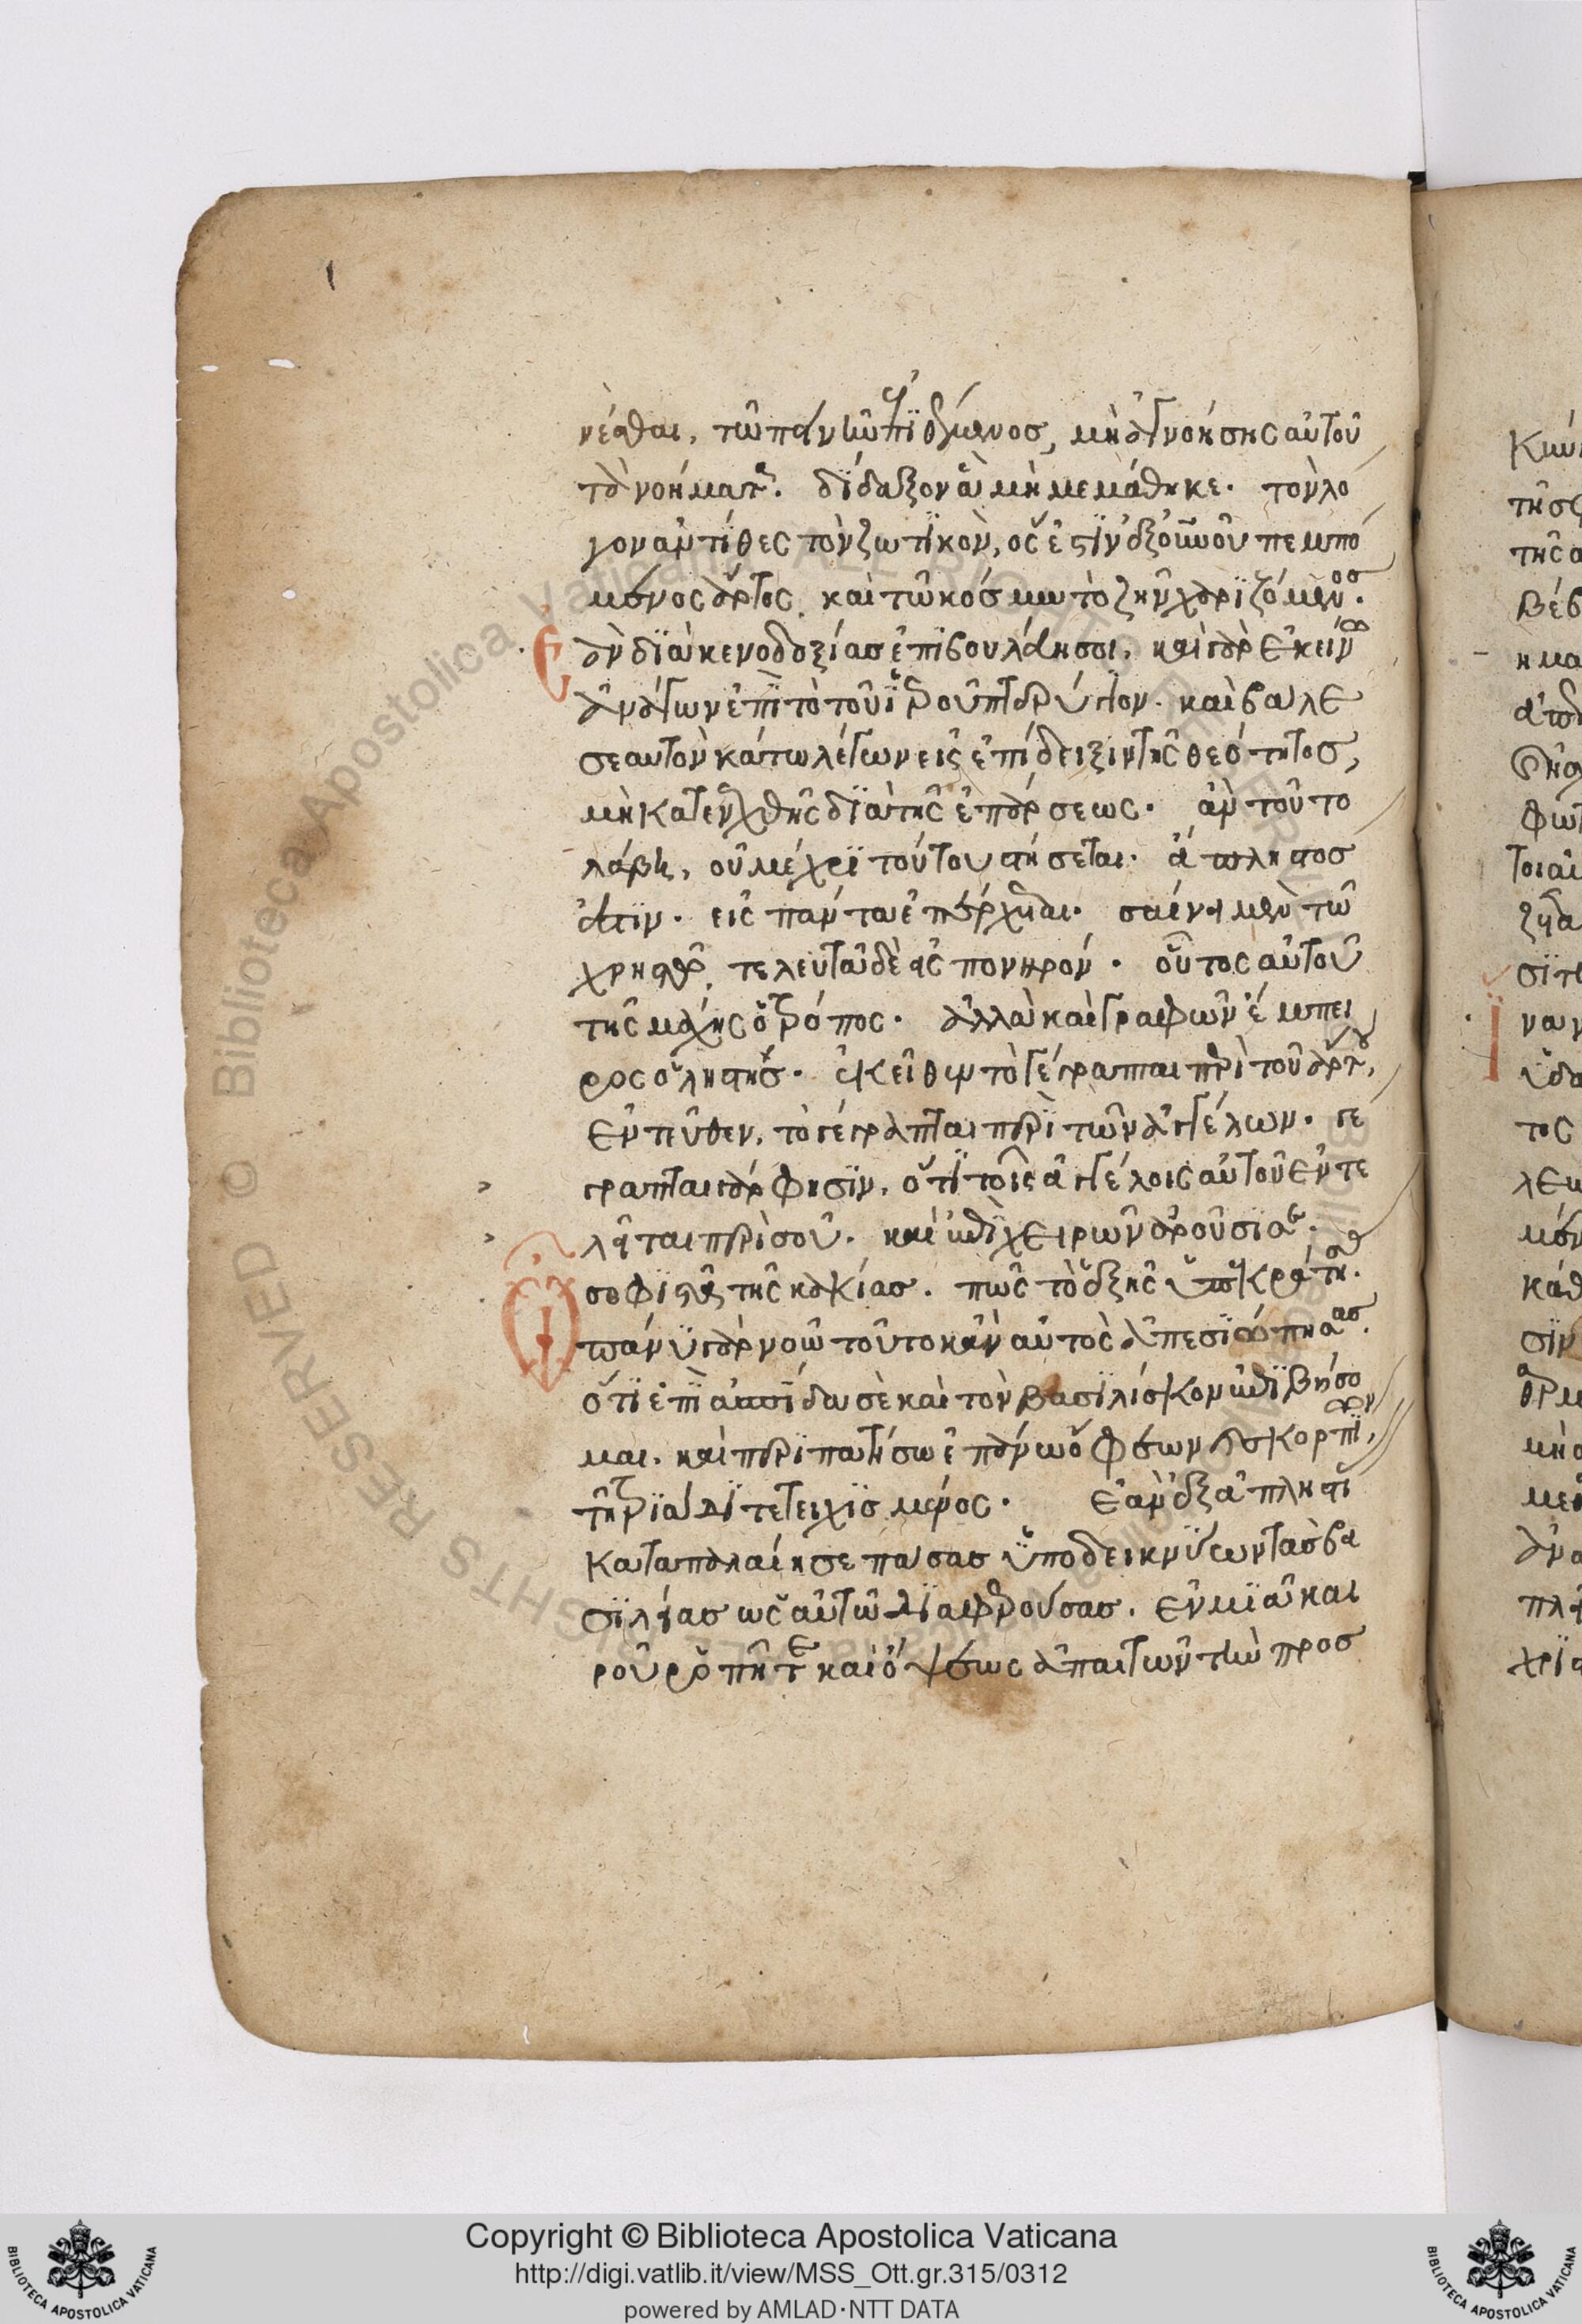 νέσθαι, τῶ πεινῶντι ἐπιθέμενος, μὴ ἀγνοήσης αὐτοῦ
τὰ νοήματα. δίδαξον ἃ μὴ μεμάθηκε· τὸν λό
γον ἀντίθες τὸν ζωτϊκὸν, ὅς ἐστϊν ἐξ οὐνοῦ πεμπό
μενος ἄρτος, καὶ τῶ κόσμω τὸ ζῆν χαρϊζόμενος.
Ἐὰν δϊὰ κενοδοξίας ἐπϊβουλεύη σοι, καὶ γὰρ ἐκεῖνον
ἀνάγων ἐπϊ τὸ τοῦ ἱεροῦ πτερύγιον. καὶ βάλε
σεαυτὸν κάτω λέγων εἰς ἐπίδειξιν τῆς θεότητος,
μὴ κατενεχθῆς δϊὰ τῆς ἐπάρσεως. ἂν τοῦτο
λάβη, οὐ μέχρϊ τούτου στήσεται. ἄπληστος
ἐστϊν. εἰς πάντα ἐπέρχεται. σαίνει μὲν τῶ
χρηστῶ, τελευτᾶ δὲ εἰς πονηρόν. οὗτος αὐτοῦ
τῆς μάχης ὁ τρόπος. ἀλλὰ καὶ γραφῶν ἔμπει
ρος ὁ ληστής. ἐκεῖθεν τὸ γέγραπται περὶ τοῦ ἄρτου,
ἐντεῦθεν, τὸ γέγραπται περϊ τῶν ἀγγέλων. γέ
γραπται γάρ φησϊν, ὅτϊ τοῖς ἀγγέλοις αὐτοῦ ἐντε
λεῖται περὶ σοῦ. καὶ ἐπὶ χειρῶν ἀροῦσϊ σε.
Ὦ σοφϊστὰ τῆς κακίας. πῶς τὸ ἑξῆς ὑπεκράτησας.
πάνϋ γὰρ νοῶ τοῦτο κἂν αὐτὸς ἀπεσϊώπησας.
ὅτϊ ἐπϊ ἀσπίδα σὲ καὶ τὸν βασϊλίσκον ἐπϊβήσο
μαι. καὶ περϊπατήσω ἐπάνω ὄφεων καὶ σκορπϊων,
τῆ τρϊάδϊ τετειχϊσμένος. Ἐὰν ἐξ ἀπληστϊ
καταπαλαίη σε πάσας ὑποδεικνύων τὰς βα
σϊλείας ὡς αὐτῶ δϊαφερούσας. ἐν μϊᾶ και
ροῦ ῥοπῆ τε καὶ ὄψεως ἀπαιτῶν τὴν προσ